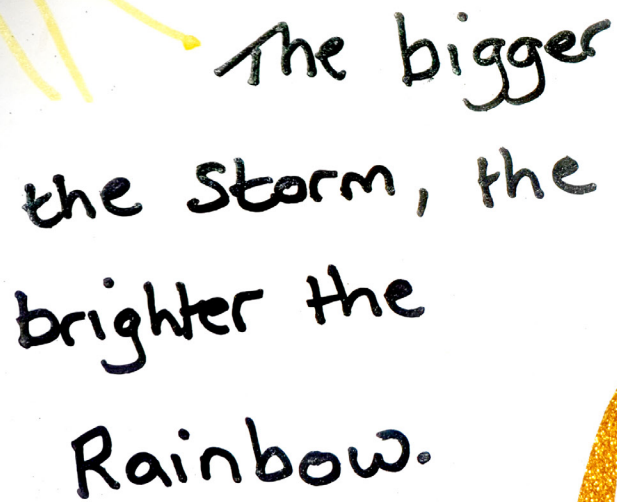 The bigger
the storm, the
brighter the
Rainbow.